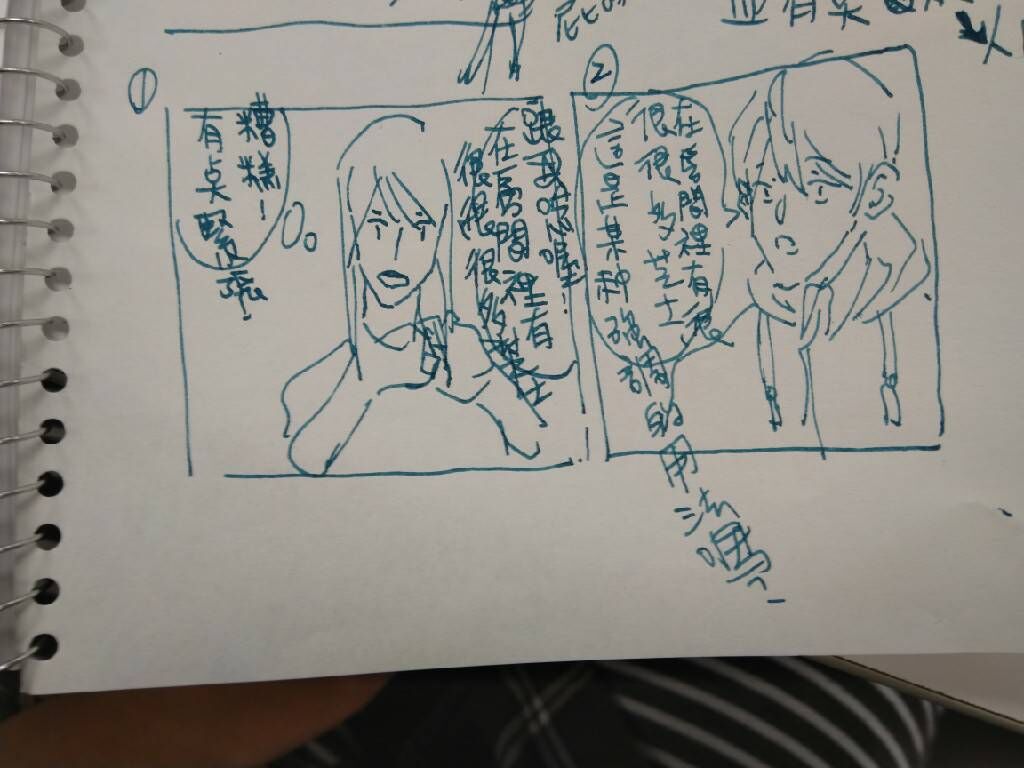 ①
跟我唸喔!
在房間裡有
很很很多芝士
糟糕!
有点緊張
②
在房間裡有很
很很多芝士
這是某種強調的用法嗎?